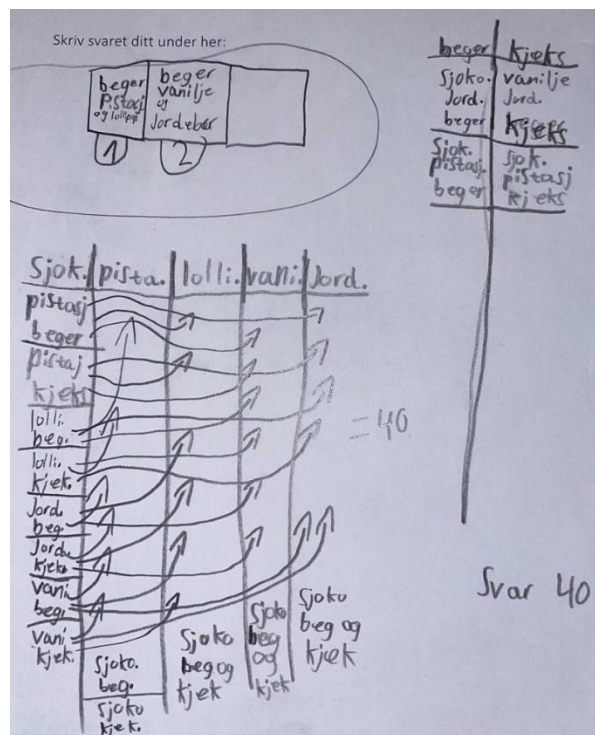 Skriv svaret ditt under her:
beger
Pistasj
og lollipop
beger
vanilje
og
Jordebær
1
2
beger kjeks
Sjoko. vanilje
Jord. Jord.
beger kjeks
Sjok. sjok.
pistasj. pistasj
beger kjeks
Sjok. pista. lolli. vani. Jord.
pistasj
beger
pistaj
kjeks
lolli.
beg.
lolli.
kjek.
Jord.
beg.
Jord.
kjek.
vani.
beg.
vani
kjek.
= 40
Sjoko.
beg.
Sjoko
kjek.
Sjoko
beg og
kjek
Sjoko
beg
og
kjek
Sjoko
beg og
kjek
Svar 40